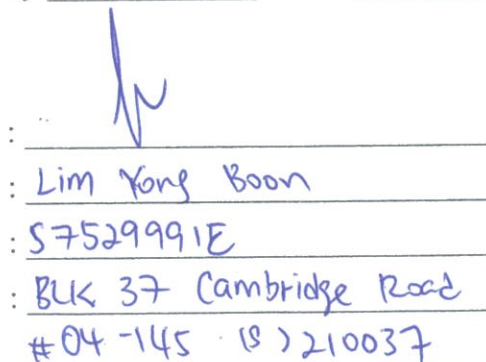 :
: Lim Yong Boon
: S7529991E
: BLK 37 Cambridge Road
#04-145 (S) 210037